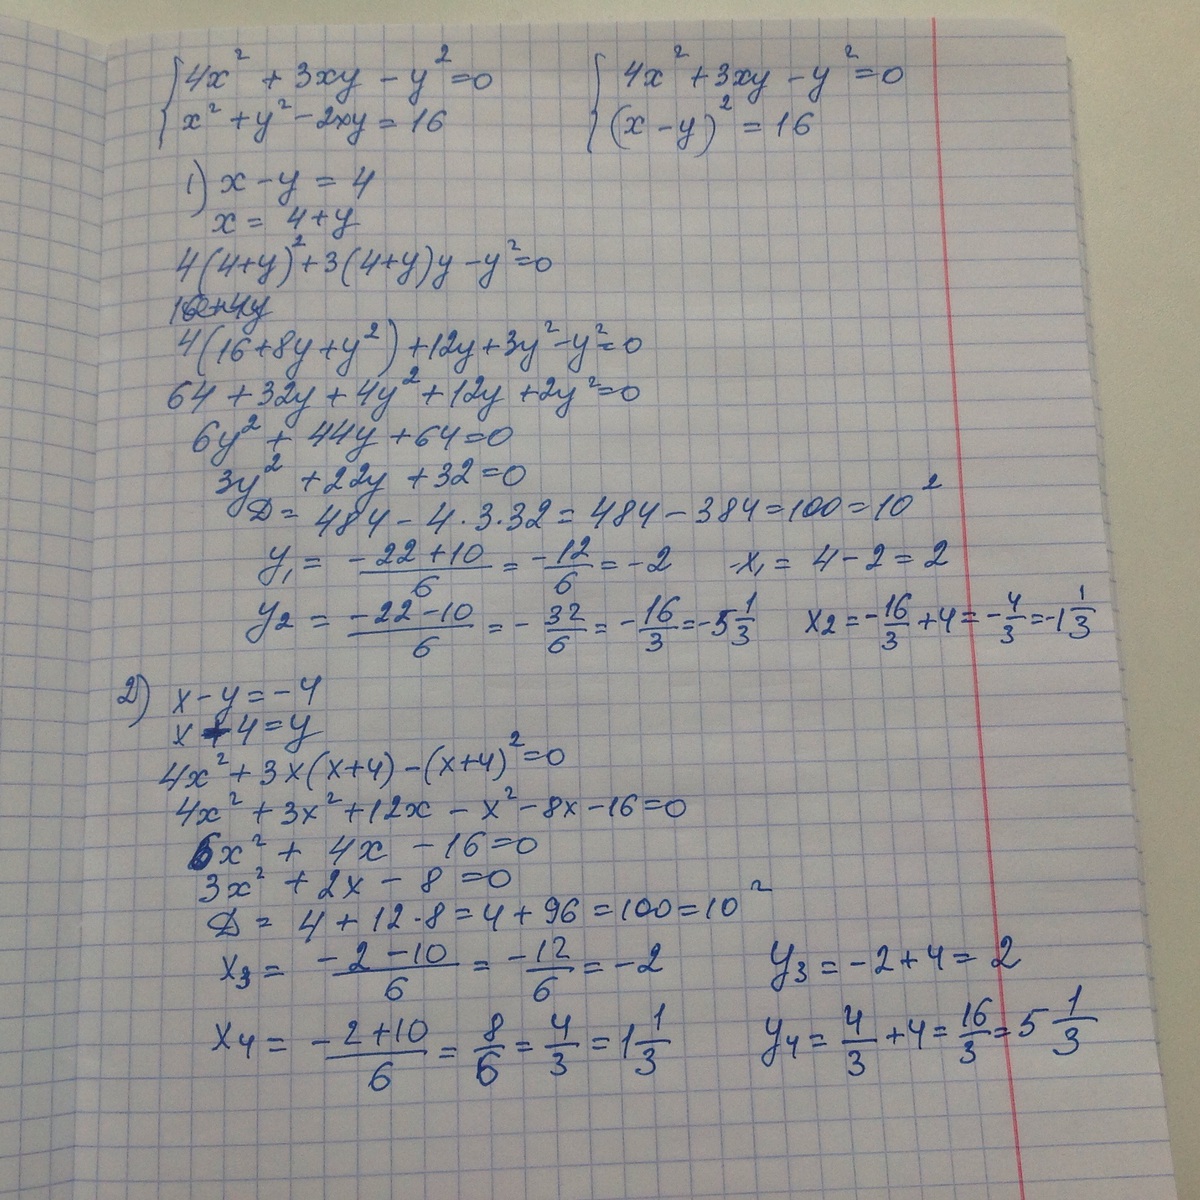 4x² + 3xy - y² = 0    4x² + 3xy - y² = 0
x² + y² - 2xy = 16    (x - y)² = 16
1) x - y = 4
x = 4 + y
4(4+y)² + 3(4+y)y - y² = 0
4(16+8y+y²) + 12y + 3y² - y² = 0
64 + 32y + 4y² + 12y + 2y² = 0
6y² + 44y + 64 = 0
3y² + 22y + 32 = 0
D = 484 - 4·3·32 = 484 - 384 = 100 = 10²
y₁ = (-22+10)/6 = -12/6 = -2    x₁ = 4 - 2 = 2
y₂ = (-22-10)/6 = -32/6 = -16/3 = -5 1/3    x₂ = -16/3 + 4 = -4/3 = -1 1/3
2) x - y = -4
x + 4 = y
4x² + 3x(x+4) - (x+4)² = 0
4x² + 3x² + 12x - x² - 8x - 16 = 0
6x² + 4x - 16 = 0
3x² + 2x - 8 = 0
D = 4 + 12·8 = 4 + 96 = 100 = 10²
x₃ = (-2-10)/6 = -12/6 = -2    y₃ = -2 + 4 = 2
x₄ = (-2+10)/6 = 8/6 = 4/3 = 1 1/3    y₄ = 4/3 + 4 = 16/3 = 5 1/3